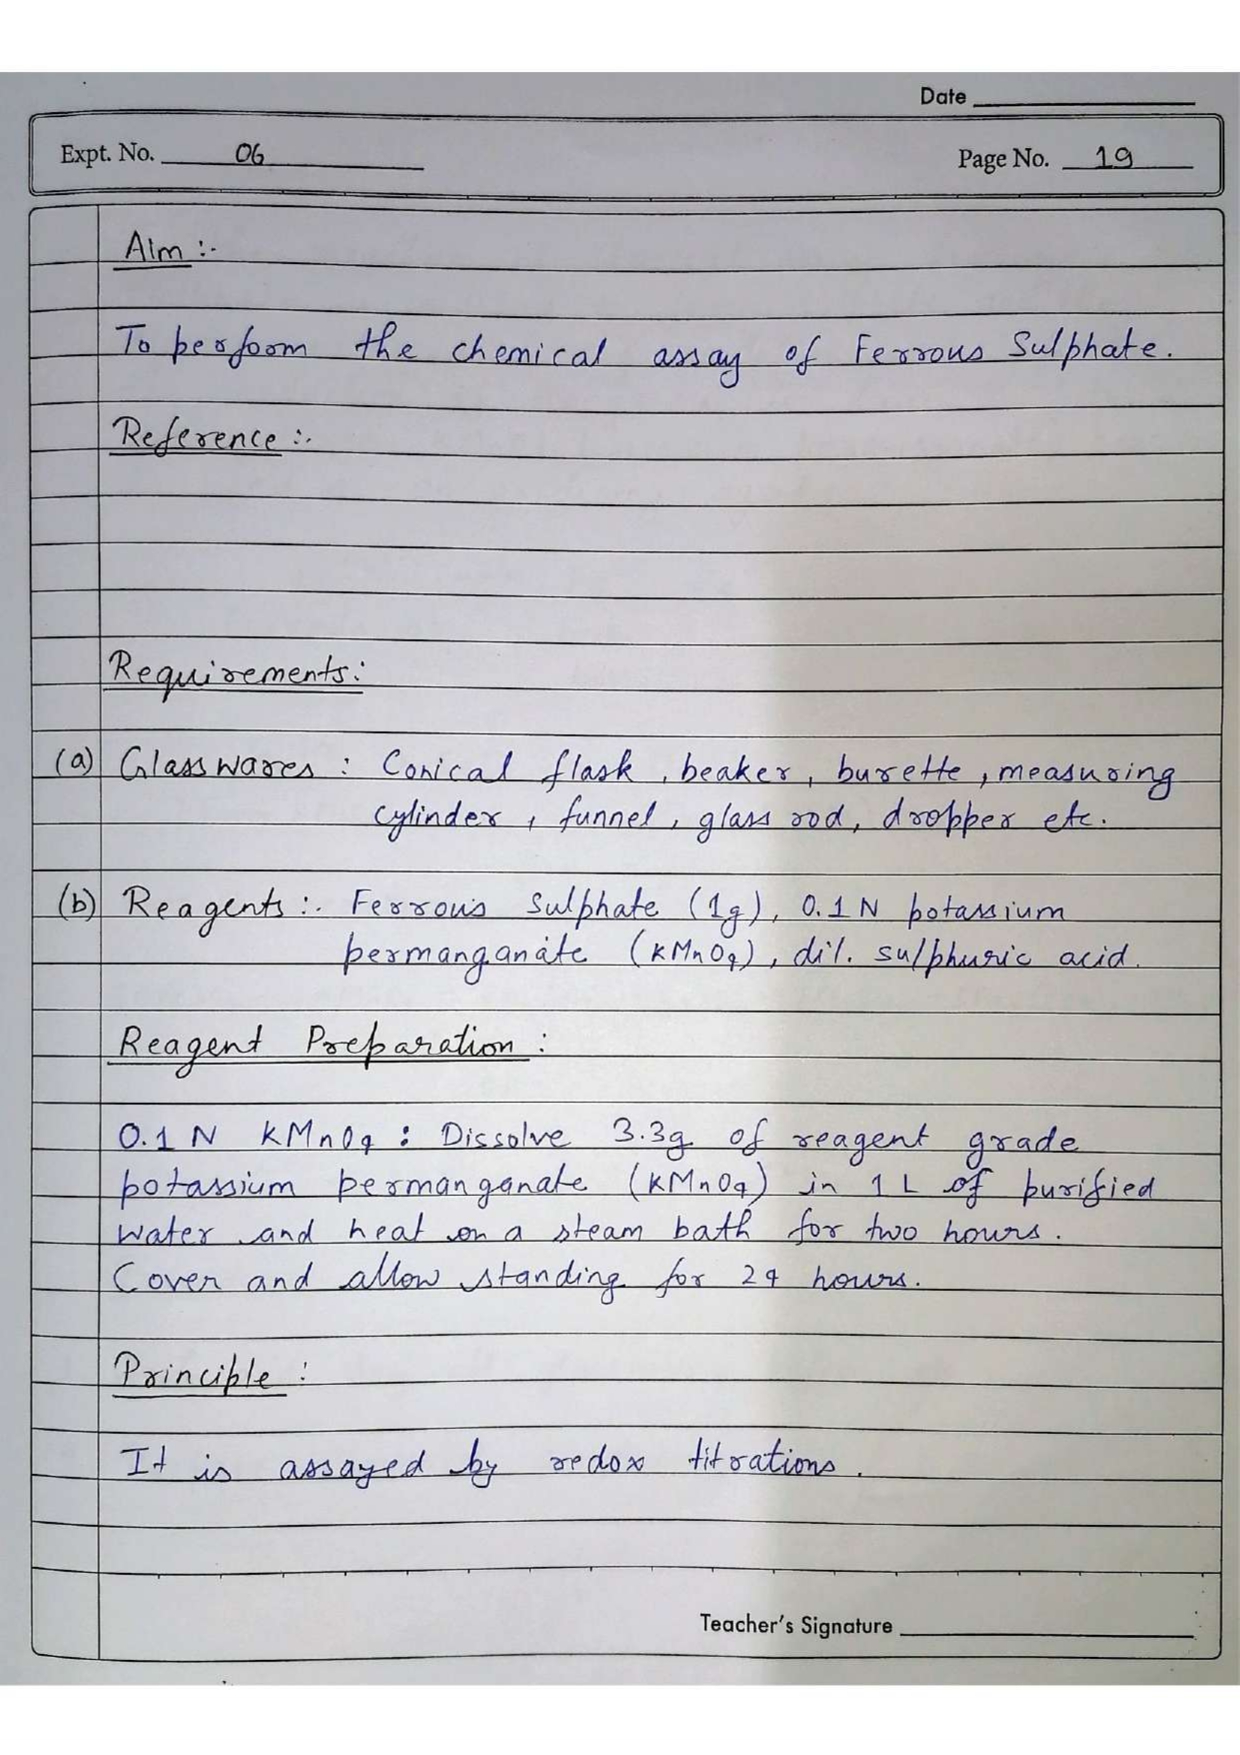 Date
Expt. No. 06
Page No. 19
Aim :-
To perform the chemical assay of Ferrous Sulphate.
Reference :-
Requirements:
(a) Glasswares : Conical flask, beaker, burette, measuring
cylinder, funnel, glass rod, dropper etc.
(b) Reagents :- Ferrous Sulphate (1g), 0.1N potassium
permanganate (KMnO4), dil. sulphuric acid.
Reagent Preparation :
0.1 N KMnO4 : Dissolve 3.3g of reagent grade
potassium permanganate (KMnO4) in 1 L of purified
water and heat on a steam bath for two hours.
Cover and allow standing for 24 hours.
Principle :
It is assayed by redox titrations.
Teacher's Signature